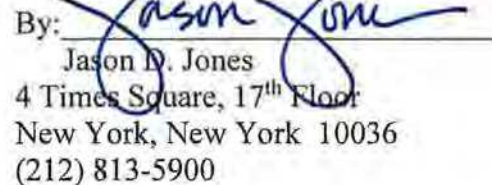 By: Jason Jone
Jason D. Jones
4 Times Square, 17th Floor
New York, New York 10036
(212) 813-5900